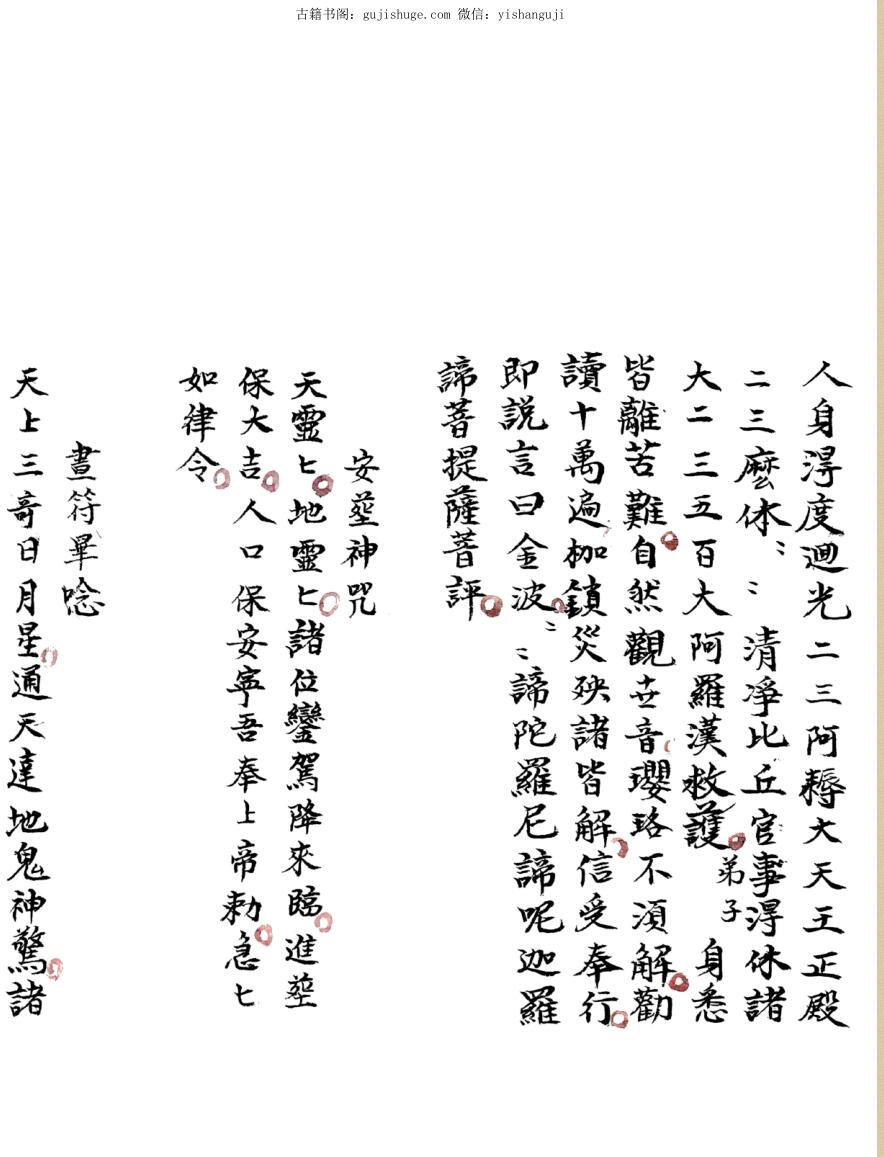 古籍书阁：gujishuge.com 微信：yishanguji
人身淂度迴光二三阿耨大天王正殿
二三麼休〻〻清凈比丘官事淂休諸
大二三五百大阿羅漢救護弟子身悉
皆離苦難自然觀世音瓔珞不湏解勸
讀十萬遍枷鎖災殃諸皆解信受奉行
即説言曰金波〻〻諦陀羅尼諦呢迦羅
諦菩提薩菩評
安塋神咒
天靈匕地靈匕諸位鑾駕降來臨進塋
保大吉人口保安寕吾奉上帝勅急七
如律令
畫符畢唸
天上三奇日月星通天達地鬼神驚諸